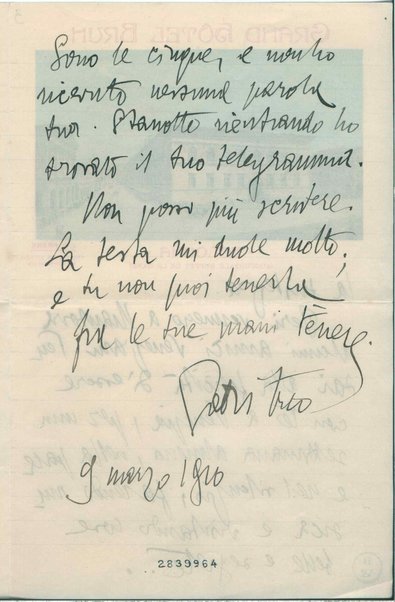 Sono le cinque, e non ho
ricevuto nessuna parola
tua. Stanotte rientrando ho
trovato il tuo telegramma.
Non posso più scrivere.
La testa mi duole molto;
e tu non puoi tenerla
fra le tue mani tènere.
9 marzo 1910
2839964